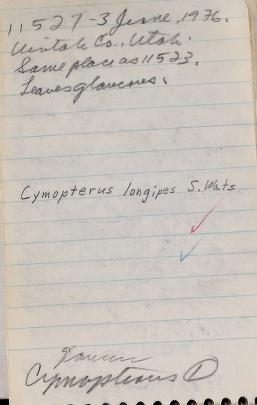 11527 - 3 June, 1976.
Uintah Co., Utah.
Same place as 11523.
Leaves glaucous.
Cymopterus longipes S. Wats
Cymopterus 1